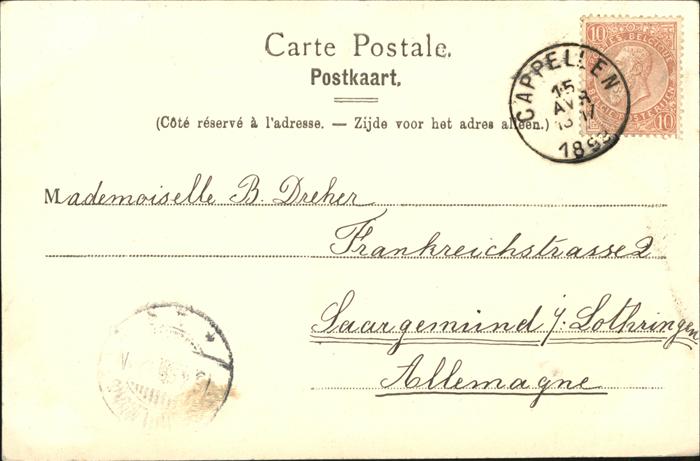 Carte Postale.
Postkaart,
(Côté réservé à l'adresse. — Zijde voor het adres alleen.)
10 10
CAPPELLEN
15
AVR
1898
10
Mademoiselle B. Dreher
Frankreichstrasse 2
Saargemünd i/: Lothringen
Allemagne